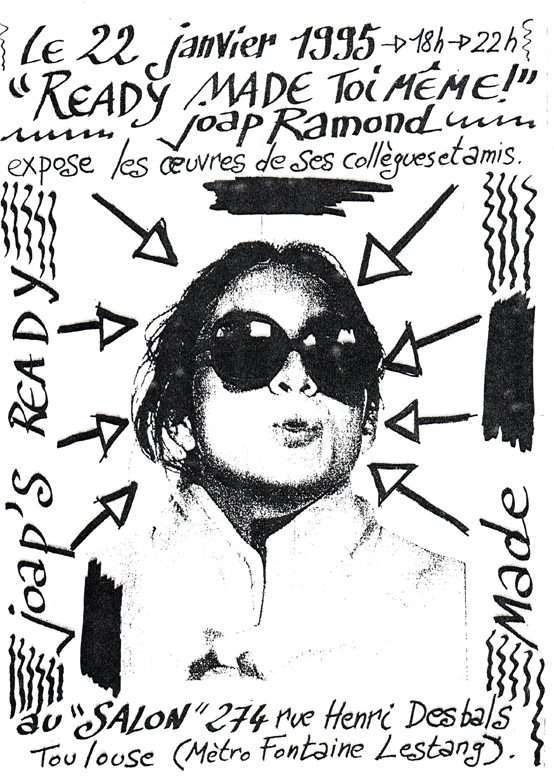 Le 22 janvier 1995 → 18h → 22h
"READY MADE Toi MÊME!"
joap Ramond
expose les œuvres de ses collègues et amis.
joap's READY
Made
au "SALON" 274 rue Henri Desbals
Toulouse (Mètro Fontaine Lestang).